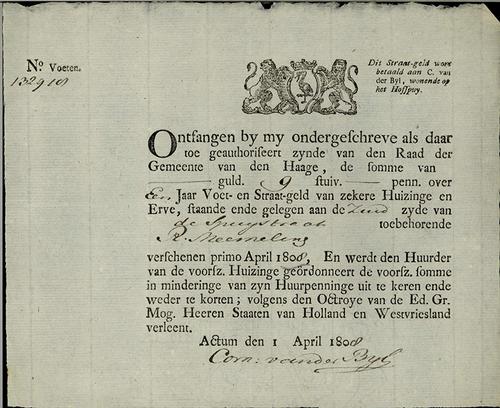 No. Voeten.
1329 10
Dit Straat-geld word
betaald aan C. van
der Byl, wonende op
het Hofspuy.
Ontfangen by my ondergeschreve als daar
toe geauthoriseert zynde van den Raad der
Gemeente van den Haage, de somme van
guld. 9 stuiv. — penn. over
Een Jaar Voet- en Straat-geld van zekere Huizinge en
Erve, staande ende gelegen aan de Zuid zyde van
de Spuystraat toebehorende
R.
verschenen primo April 1808, En werdt den Huurder
van de voorsz. Huizinge geordonneert de voorsz. somme
in minderinge van zyn Huurpenninge uit te keren ende
weder te korten; volgens den Octroye van de Ed. Gr.
Mog. Heeren Staaten van Holland en Westvriesland
verleent.
Actum den 1 April 1808
Corn: vander Byl